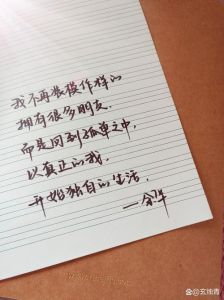 我不再装模作样的
拥有很多朋友，
而是回到孤单之中，
以真正的我，
开始独自的生活。
—余华
@玄烛青